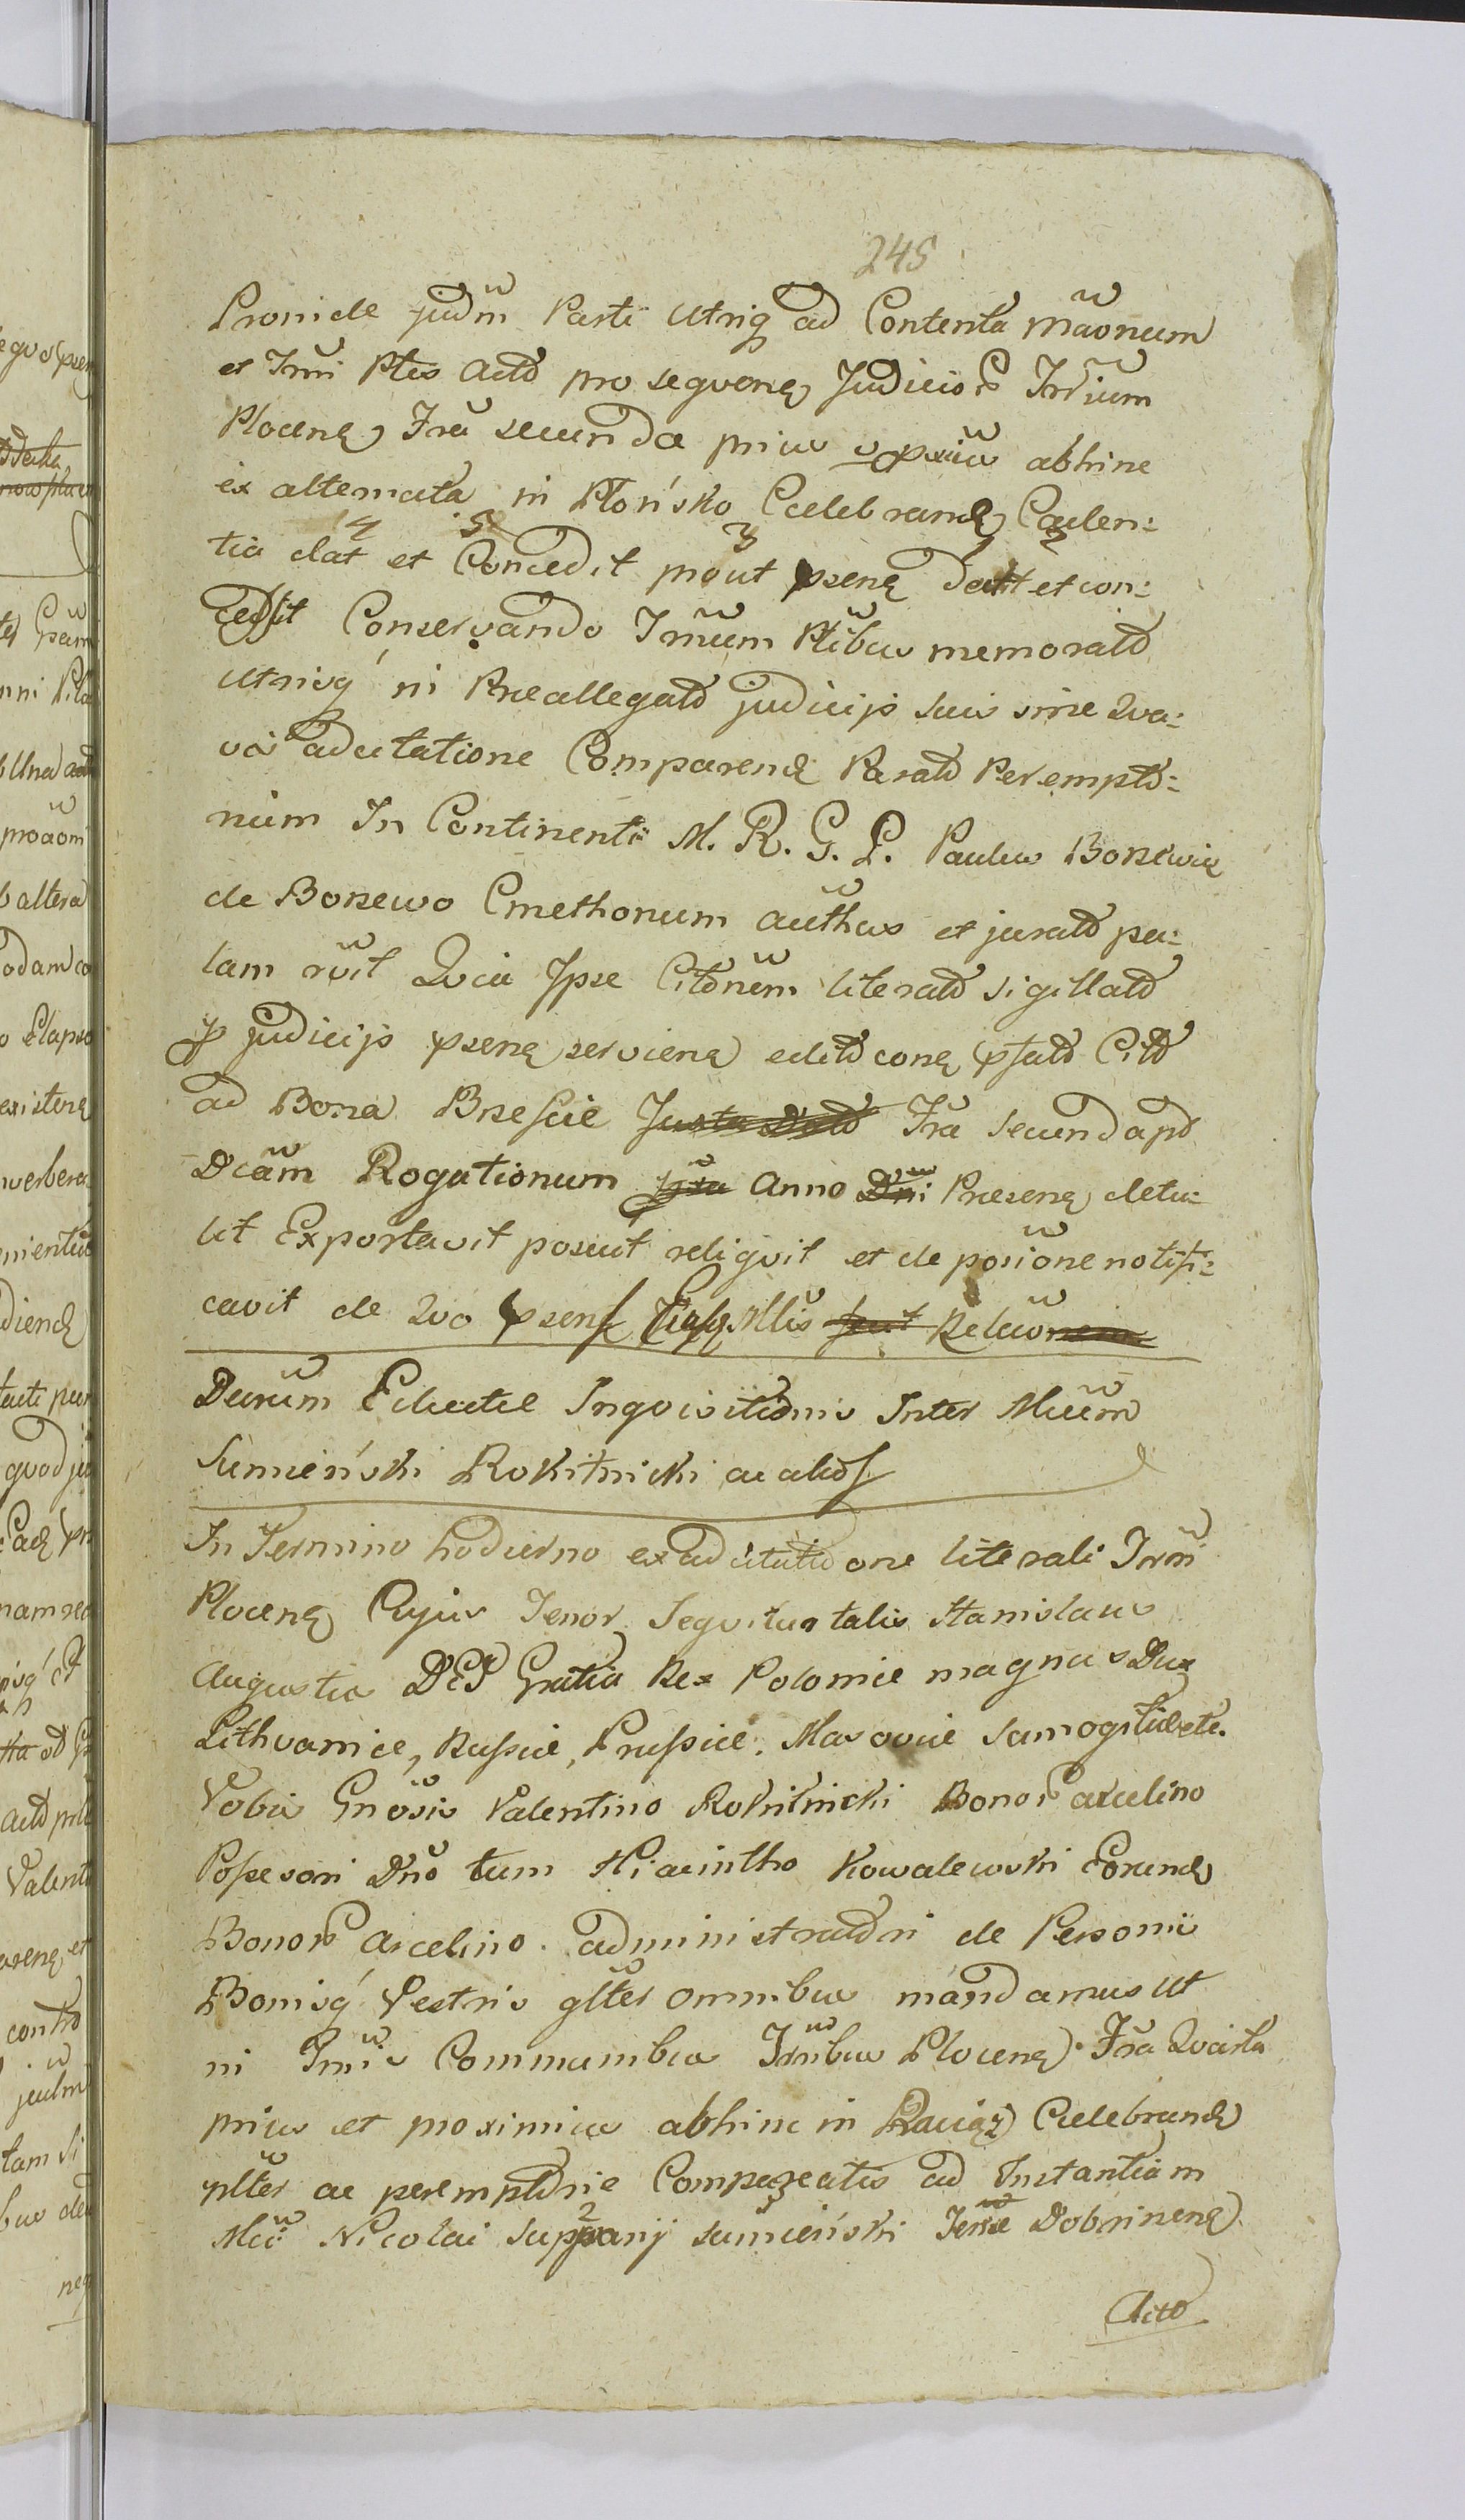 245
Proinde judm Parti Utriq ad Contenta maonum
et Tmi Ptes Actō pro sequenę Judicior Trium
Plocenę Fra secunda priu proxiu abhinc
ex alternata in Płońsko Celebrandę Caden:
tia dat et Concedit prout psenę datt et con:
cedsit Conservando Tmum Ptibus memoratō
Utrisq in Preallegatō judicijs suis sine Qva:
vis adcitatione Comparendę Paratō Peremptō:
rium In Continenti M. R. G. P. Paulus Borzewię
de Borzewo Cmethonum authus et juratō pa:
lam rvit Qvia Ipse Citōnem literatō sigillatō
p judicijs psenę servienę editō conę psatō Citō
ad Bona Brzescie Juxta Datō Fra Secunda pō
Dcam Rogationum Anno Dni Presenę detu:
lit Exportavit posuit reliqvit et de posione notifi:
cavit de Qvo psens Ejusq Mtis Relacio
Decrum Educatę Inqvisitōnis Inter Mum
Sumieński Rokitnicki ac alios
In Termino hodierno ex adcitatione literali Trm
Plocenę Cujus Tenor Sequitur talis Stanislaus
Augustus DEI Gratia Rex Polonie magnus Dux
Lithvanie, Russie, Prussie, Masovie Samogitie etc.
Vobis Gnosis Valentino Rokitnicki Bonor Arcelino
Possesori Dno tum Hiacintho Kowalewski Eorundę
Bonor Arcelino administratōri de Personis
Bonisq Vestris glter omnibus mandamus Ut
in Tmis Communibus Trribus Plocenę Fra Qvarta
priu et proximius abhinc in Raciąż Celebrandę
plter ac peremptōrie Compareatis ad Instantiam
Mci Nicolai Suppanij Sumieński Terre Dobrinenę
Actō